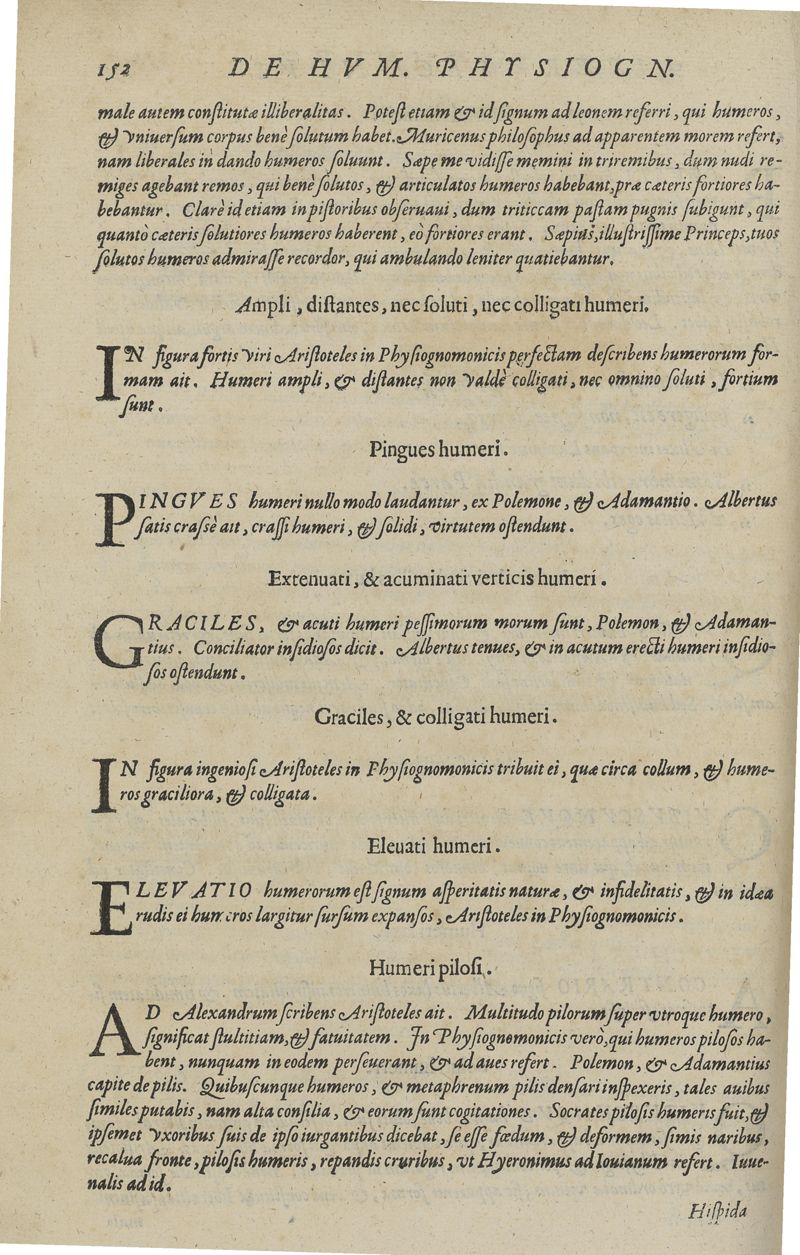 152 DE HVM. PHYSIOGN.
male autem conſtitutæ illiberalitas. Poteſt etiam & id ſignum ad leonem referri, qui humeros,
& vniuerſum corpus benè ſolutum habet. Muricenus philoſophus ad apparentem morem refert,
nam liberales in dando humeros ſoluunt. Sæpe me vidiſſe memini in triremibus, dum nudi re-
miges agebant remos, qui benè ſolutos, & articulatos humeros habebant, præ cæteris fortiores ha-
bebantur. Clarè id etiam in piſtoribus obſeruaui, dum triticcam paſtam pugnis ſubigunt, qui
quantò cæteris ſolutiores humeros haberent, eò fortiores erant. Sæpiùs, illuſtriſſime Princeps, tuos
ſolutos humeros admiraſſe recordor, qui ambulando leniter quatiebantur.
Ampli, diſtantes, nec ſoluti, nec colligati humeri.
IN figura fortis viri Ariſtoteles in Phyſiognomonicis perfectam deſcribens humerorum for-
mam ait. Humeri ampli, & diſtantes non valdè colligati, nec omnino ſoluti, fortium
ſunt.
Pingues humeri.
PINGVES humeri nullo modo laudantur, ex Polemone, & Adamantio. Albertus
ſatis craſsè ait, craſſi humeri, & ſolidi, virtutem oſtendunt.
Extenuati, & acuminati verticis humeri.
GRACILES, & acuti humeri peſſimorum morum ſunt, Polemon, & Adaman-
tius. Conciliator inſidioſos dicit. Albertus tenues, & in acutum erecti humeri inſidio-
ſos oſtendunt.
Graciles, & colligati humeri.
IN figura ingenioſi Ariſtoteles in Phyſiognomonicis tribuit ei, quæ circa collum, & hume-
ros graciliora, & colligata.
Eleuati humeri.
ELEVATIO humerorum eſt ſignum aſperitatis naturæ, & infidelitatis, & in idæa
rudis ei humeros largitur ſurſum expanſos, Ariſtoteles in Phyſiognomonicis.
Humeri piloſi.
AD Alexandrum ſcribens Ariſtoteles ait. Multitudo pilorum ſuper vtroque humero,
ſignificat ſtultitiam, & fatuitatem. In Phyſiognomonicis verò, qui humeros piloſos ha-
bent, nunquam in eodem perſeuerant, & ad aues refert. Polemon, & Adamantius
capite de pilis. Quibuſcunque humeros, & metaphrenum pilis denſari inſpexeris, tales auibus
ſimiles putabis, nam alta conſilia, & eorum ſunt cogitationes. Socrates piloſis humeris fuit, &
ipſemet vxoribus ſuis de ipſo iurgantibus dicebat, ſe eſſe fœdum, & deformem, ſimis naribus,
recalua fronte, piloſis humeris, repandis cruribus, vt Hyeronimus ad Iouianum refert. Iuue-
nalis ad id.
Hiſpida